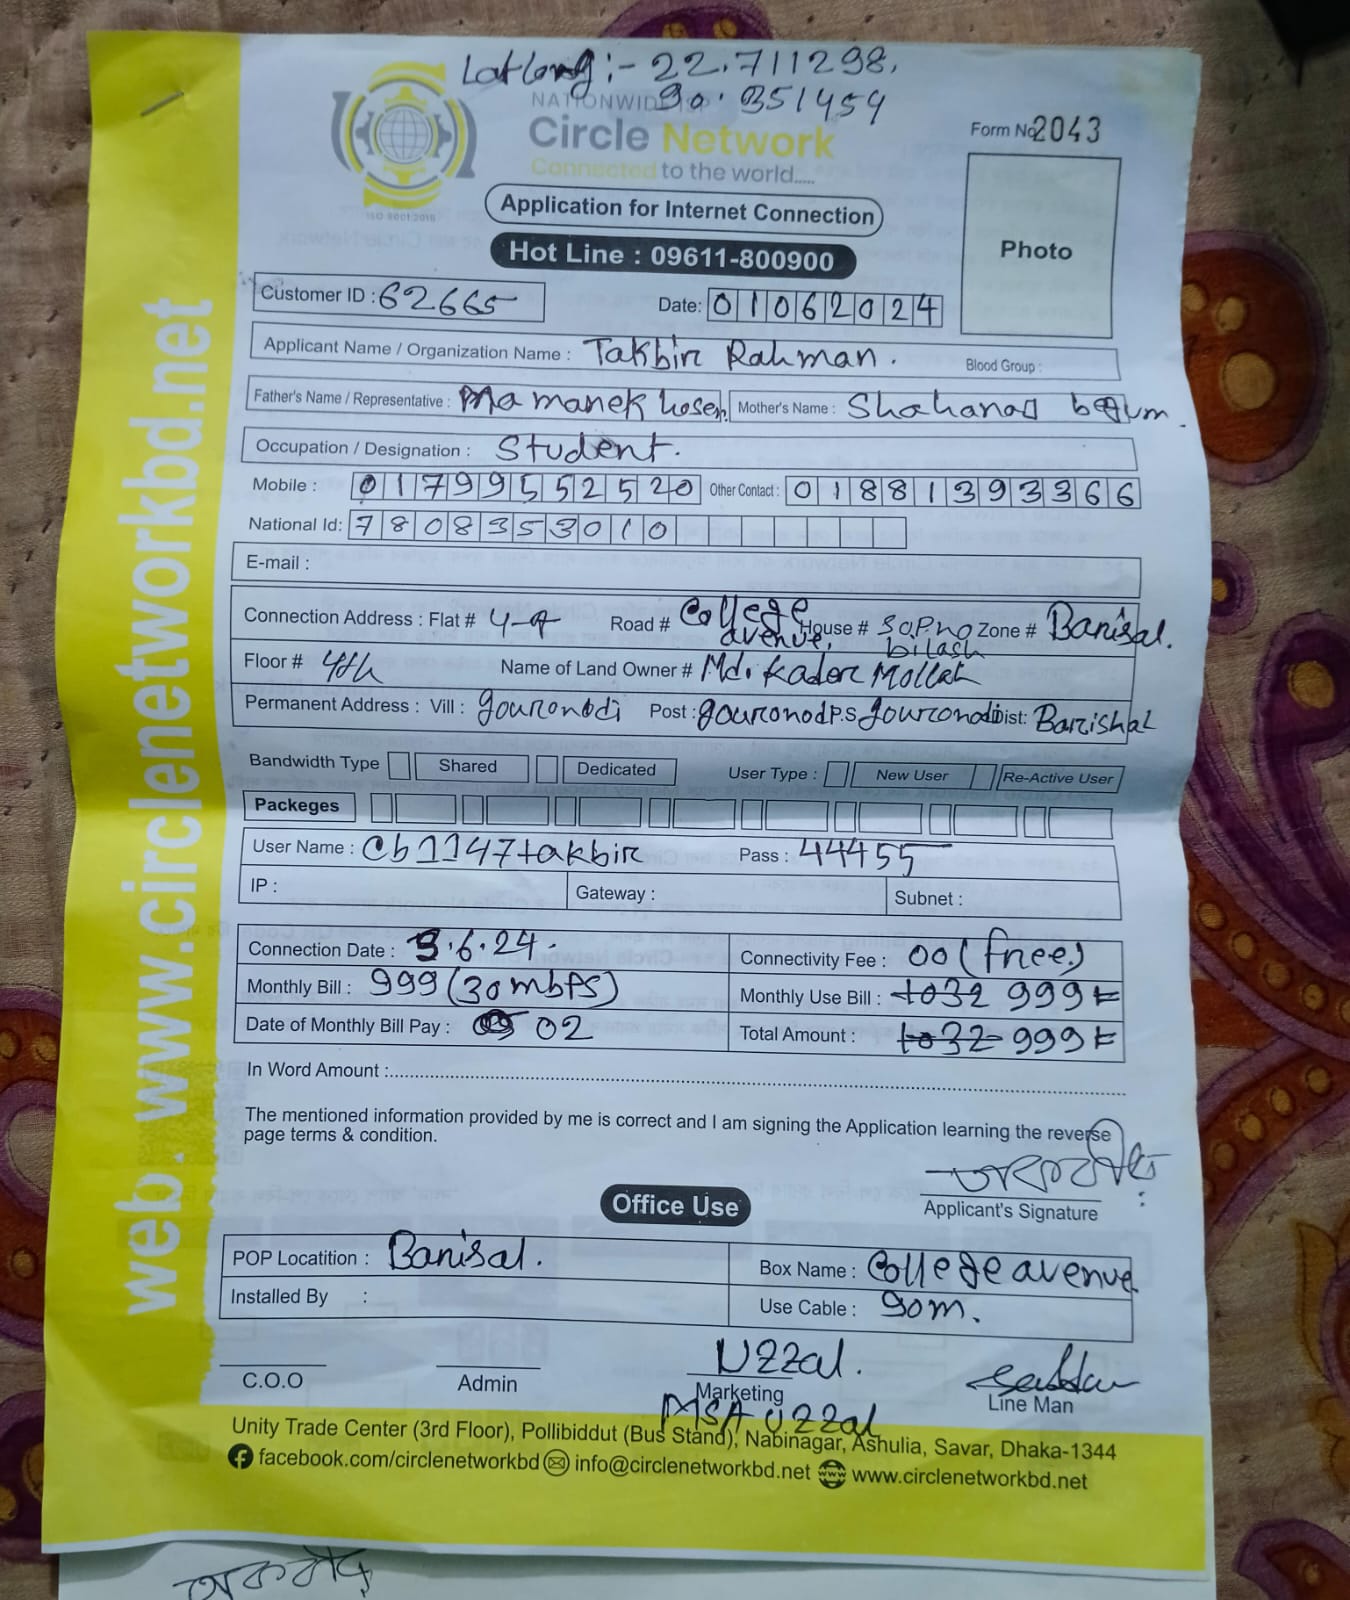 Lat long :- 22.711298,
90.351454
NATIONWIDE ISP
Circle Network
Connected to the world.....
ISO 9001:2015
Form No 2043
Application for Internet Connection
Photo
Hot Line : 09611-800900
Customer ID : 62665
Date: 01062024
Applicant Name / Organization Name : Takbir Rahman. Blood Group :
Father's Name / Representative : Ma manek hosen Mother's Name : Shahanaj begum.
Occupation / Designation : Student.
Mobile : 01799552520 Other Contact : 01881393366
National Id: 7808353010
E-mail :
Connection Address : Flat # 4-A Road # College avenue, House # Sopno bilash Zone # Barisal.
Floor # 4th Name of Land Owner # Md. Kader Mollah
Permanent Address : Vill : gouronodi Post : gouronodi P.S gouronodi Dist: Barishal
Bandwidth Type Shared Dedicated User Type : New User Re-Active User
Packeges
User Name : cb1147takbir Pass : 44455
IP : Gateway : Subnet :
Connection Date : 3.6.24. Connectivity Fee : 00 (free)
Monthly Bill : 999 (30 mbps) Monthly Use Bill : 1032 999
Date of Monthly Bill Pay : 02 Total Amount : 1032 999
In Word Amount :
The mentioned information provided by me is correct and I am signing the Application learning the reverse
page terms & condition.
Applicant's Signature
Office Use
POP Locatition : Barisal. Box Name : College avenue
Installed By : Use Cable : 90m.
Uzzal.
C.O.O Admin Marketing Line Man
MSA Uzzal
Unity Trade Center (3rd Floor), Pollibiddut (Bus Stand), Nabinagar, Ashulia, Savar, Dhaka-1344
facebook.com/circlenetworkbd info@circlenetworkbd.net www.circlenetworkbd.net
web : www.circlenetworkbd.net